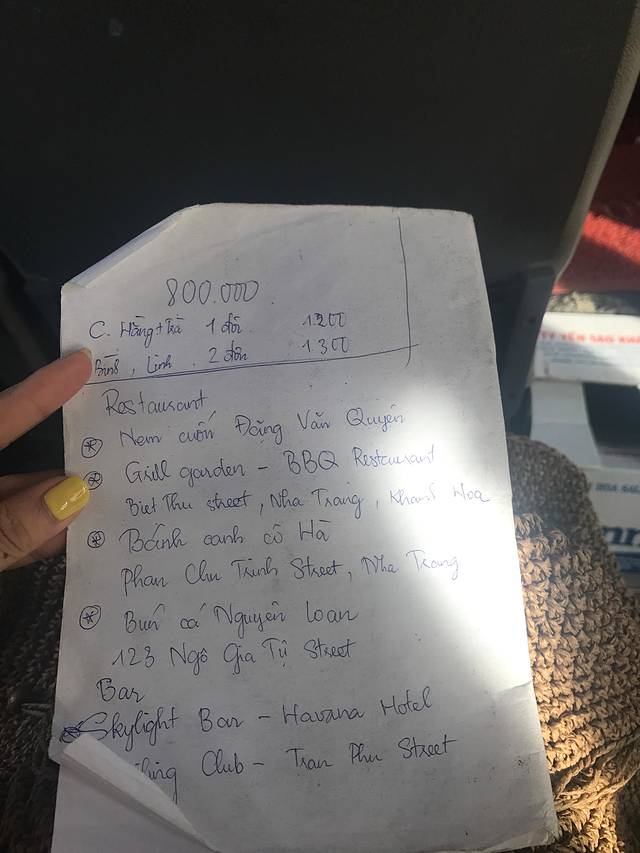 800.000
C. Hằng + Trà 1 đôi 1.200
Linh 2 đôi 1.300
Restaurant
Nem cuốn Đặng Văn Quyên
Grill garden - BBQ Restaurant
Biet Thu street, Nha Trang, Khanh Hoa
Bánh canh cô Hà
Phan Chu Trinh Street, Nha Trang
Bún cá Nguyên Loan
123 Ngô Gia Tự Street
Bar
Skylight Bar - Havana Hotel
Club - Tran Phu Street
TY YẾN SÀO KHÁ